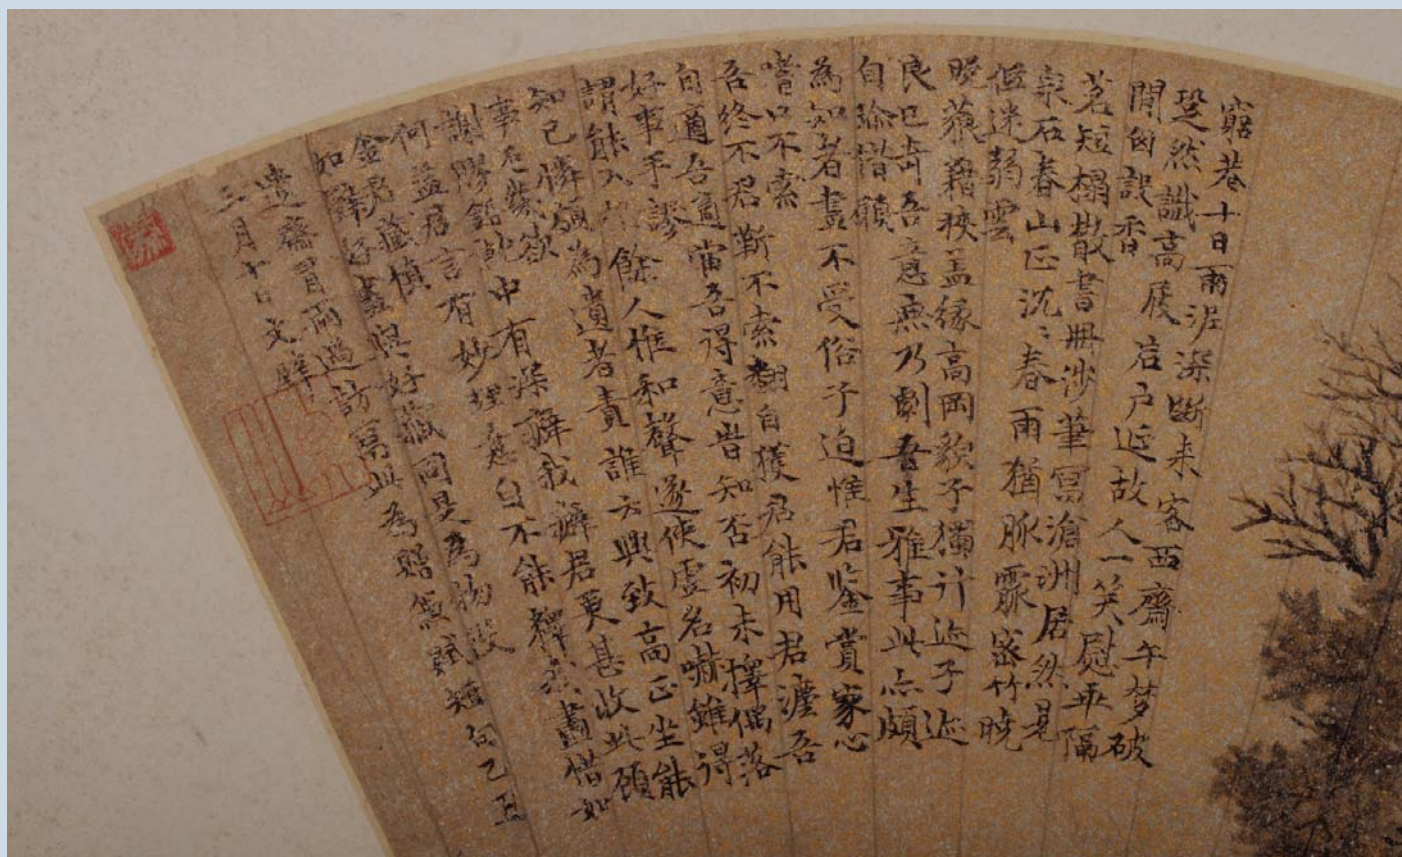 窮巷十日雨泥深斷来客西齋午梦破
跫然識高屐启户延故人一笑慰平隔
閒囱設香
茗短榻散書冊沙筆寫滄洲居然見
泉石春山正沈〻春雨猶脉霢密竹晓
低迷弱雲
晚羃狹盖缘高岡欵子獨行迹子迹
良已奇吾意無乃劇吾生雅事此点頗
自矜惜顧
為知者畫不受俗子迫惟君鉴賞家心
嗜口不索
吾終不君靳不索翻自獲君能用君瀍吾
自適吾適當吾得意峕知否初未擇偶落
好事手謬
謂能入餘人惟和聲遂使虚名嚇雖得
知己憐頗為遺者責誰云興致高正坐能
事名幾欲
謝膠鉛就中有深癖我癖君更甚收此碩
何益君言有妙理意自不能釋畫惜如
金君藏慎
如好畫與好藏同是為物役
遣齋冒雨過訪寫此為贈并賦短句乙丑
三月十日文壁